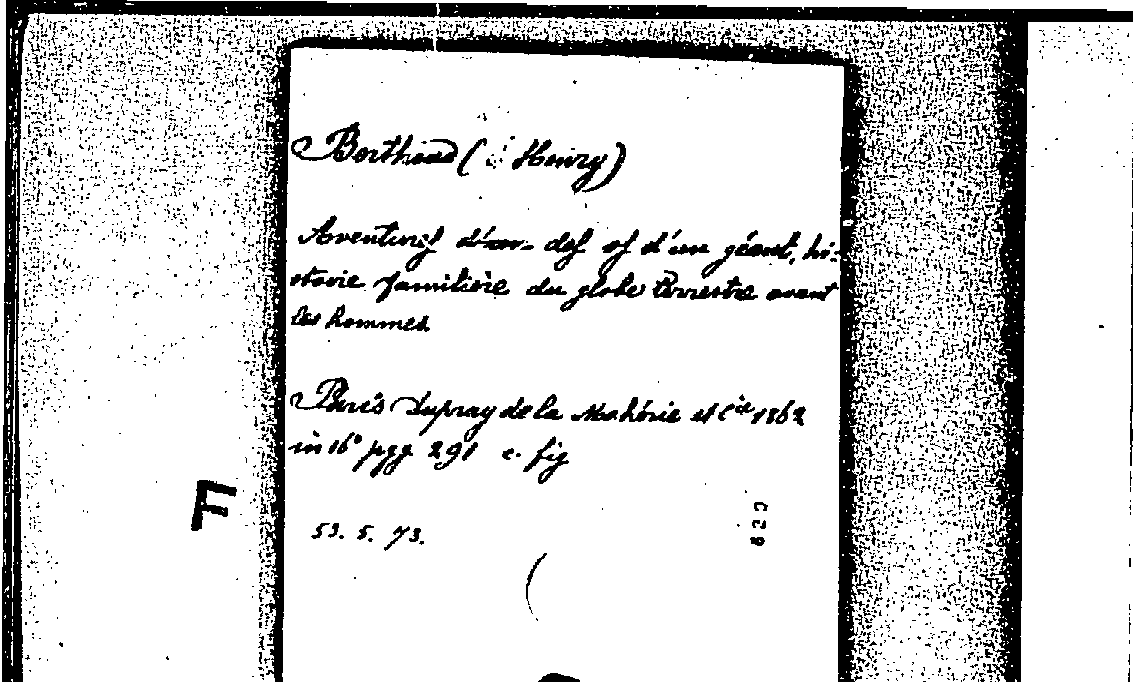 Berthoud (S. Henry)
Aventures d'un des os d'un géant, hi-
stoire familière du globe terrestre avant
les hommes
Paris Dupray de la Mahérie et Cie 1862
in 16° pgg. 291 c. fig
F
53. 5. 73.